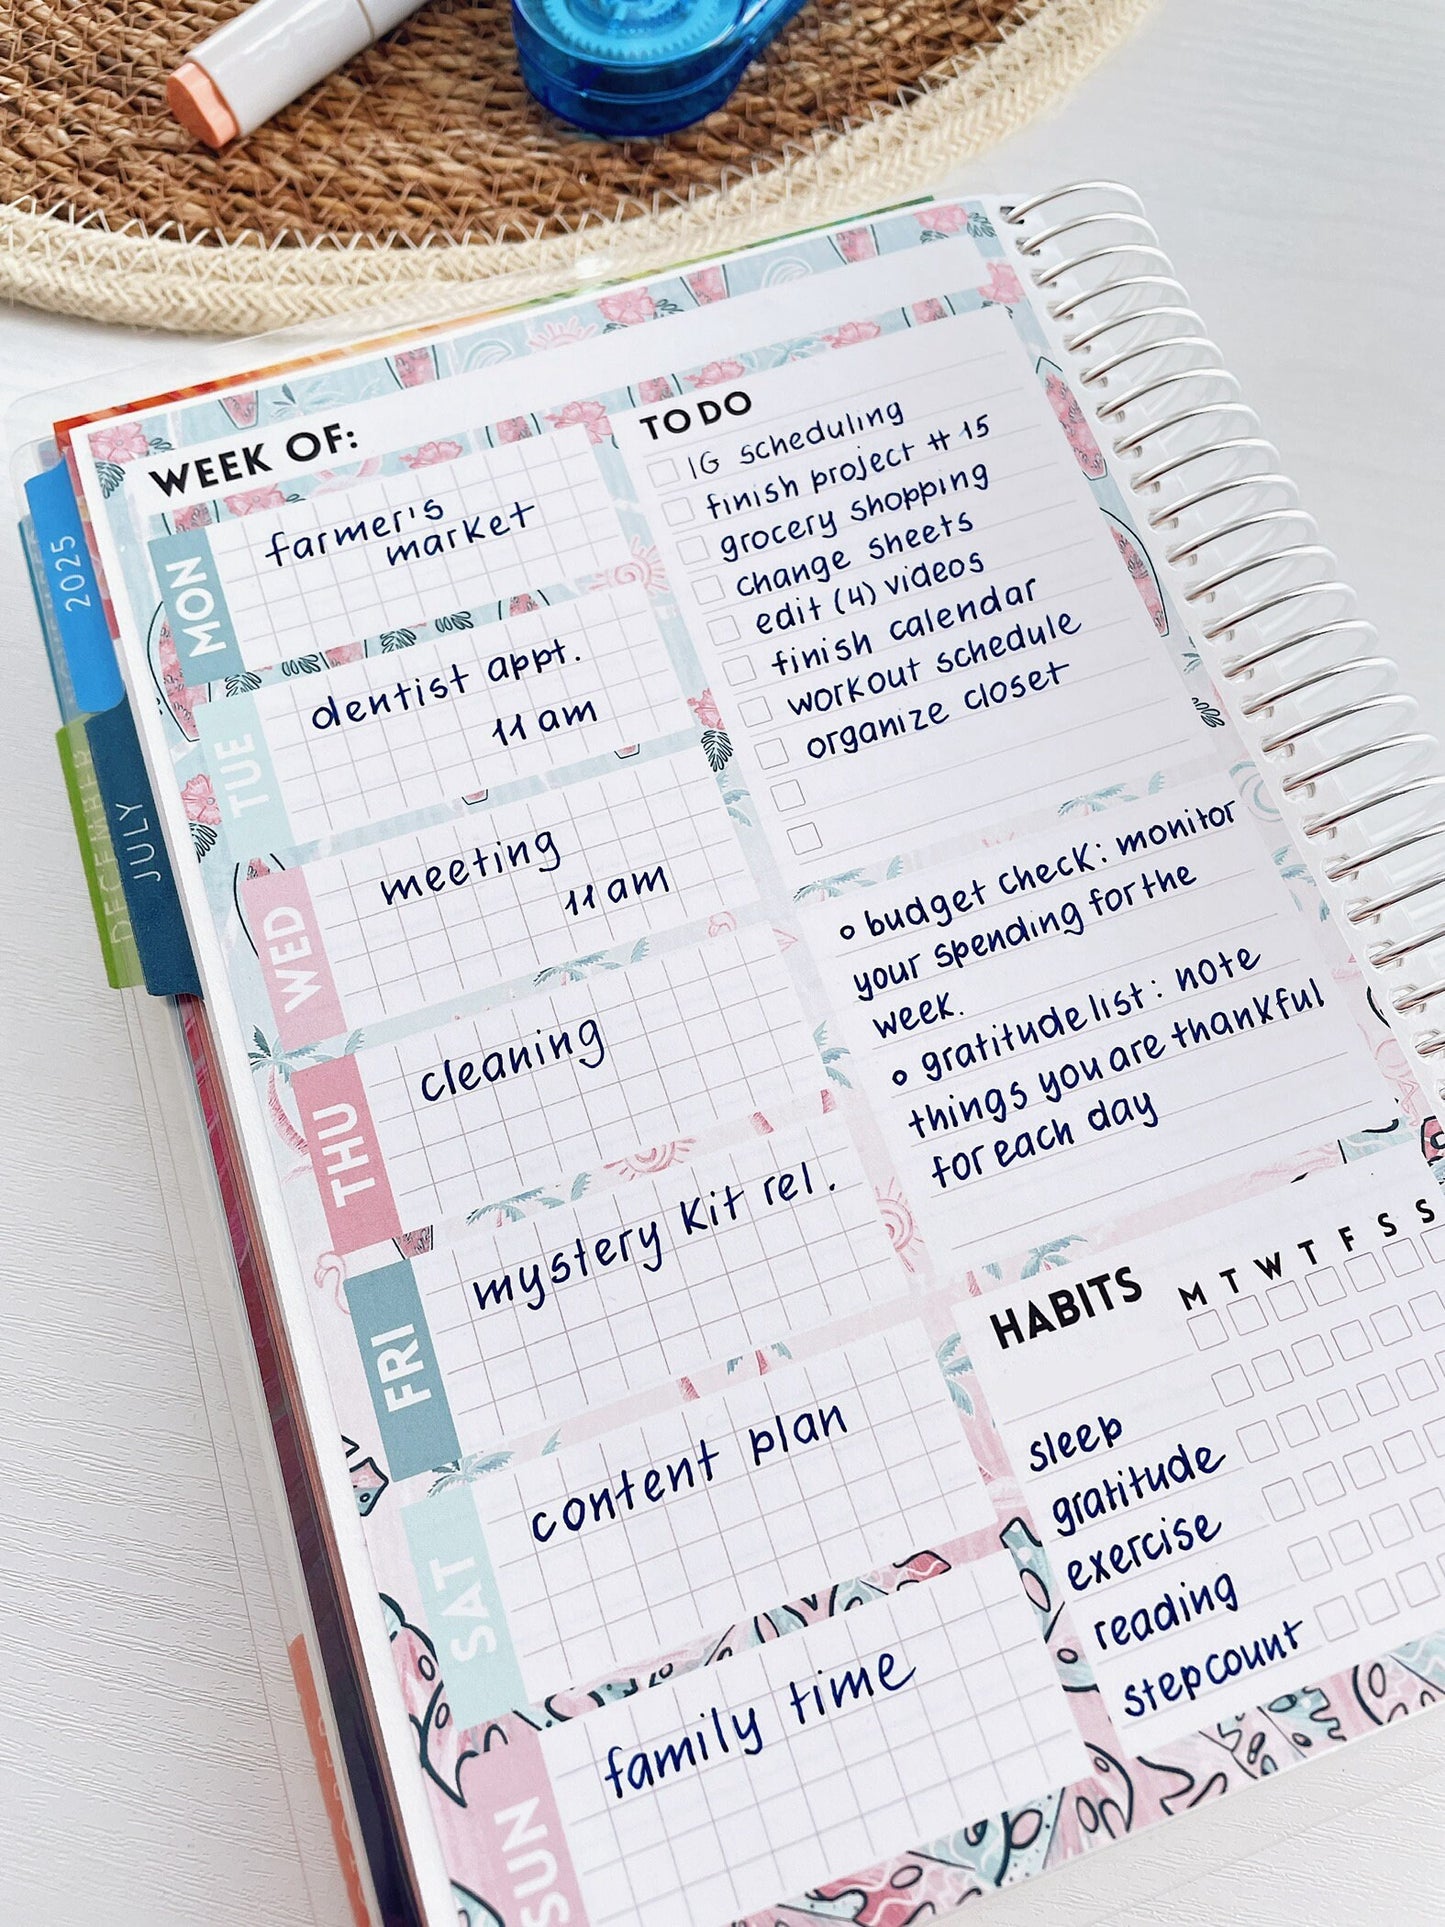 WEEK OF:
MON
farmer's
market
TUE
dentist appt.
11 am
WED
meeting
11 am
THU
cleaning
FRI
mystery kit rel.
SAT
content plan
SUN
family time
TO DO
IG scheduling
finish project #15
grocery shopping
change sheets
edit (4) videos
finish calendar
workout schedule
organize closet
budget check: monitor
your spending for the
week.
gratitude list: note
things you are thankful
for each day
HABITS
M T W T F S S
sleep
gratitude
exercise
reading
step count
2025
JULY
DECEMBER